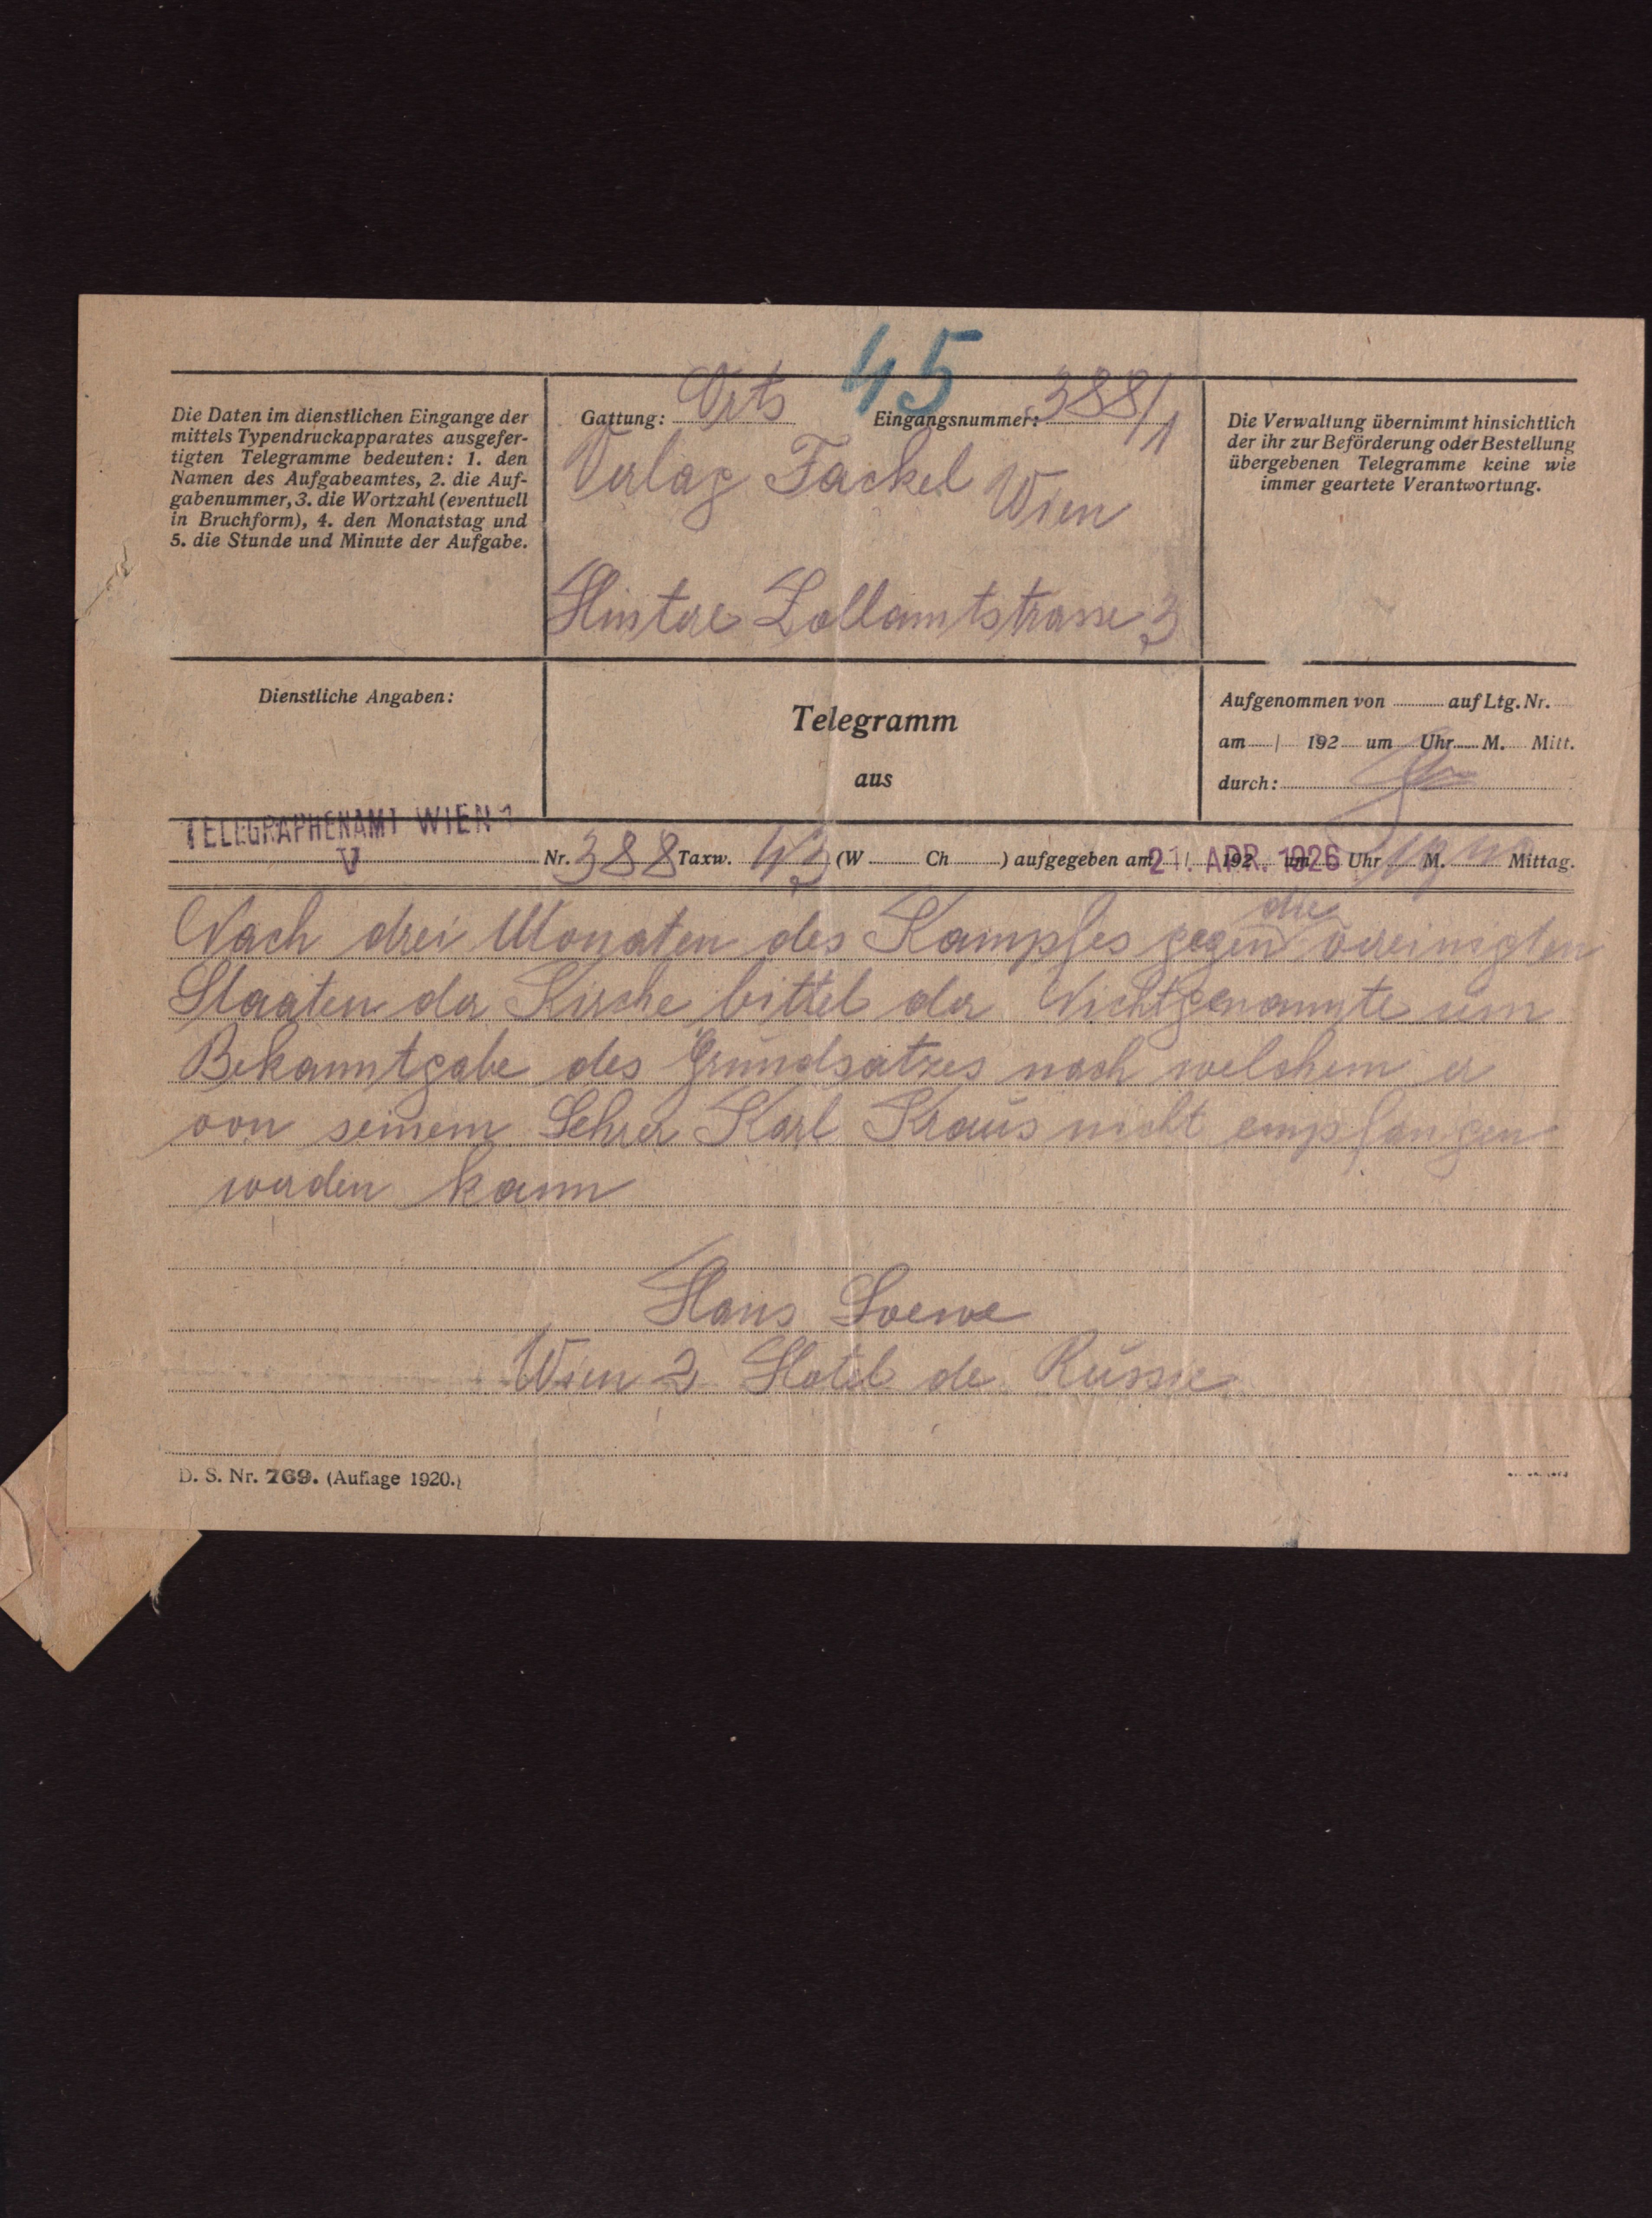 45
Die Daten im dienstlichen Eingange der
mittels Typendruckapparates ausgefer-
tigten Telegramme bedeuten: 1. den
Namen des Aufgabeamtes, 2. die Auf-
gabenummer, 3. die Wortzahl (eventuell
in Bruchform), 4. den Monatstag und
5. die Stunde und Minute der Aufgabe.
Gattung: Orts Eingangsnummer: 388/1
Verlag Fackel Wien
Hintere Zollamtstrasse 3
Die Verwaltung übernimmt hinsichtlich
der ihr zur Beförderung oder Bestellung
übergebenen Telegramme keine wie
immer geartete Verantwortung.
Dienstliche Angaben:
Telegramm
aus
Aufgenommen von auf Ltg. Nr.
am / 192 um Uhr M. Mitt.
durch:
TELEGRAPHENAMT WIEN 1
V
Nr. 388 Taxw. 43 (W Ch ) aufgegeben am 21. APR. 1926 192 um Uhr M. Mittag.
Nach drei Monaten des Kampfes gegen die vereinigten
Staaten der Kirche bittet der Nichtgenannte um
Bekanntgabe des Grundsatzes nach welchem er
von seinem Lehrer Karl Kraus nicht empfangen
werden kann
Hans Loewe
Wien 2 Hotel de Russie
D. S. Nr. 769. (Auflage 1920.)